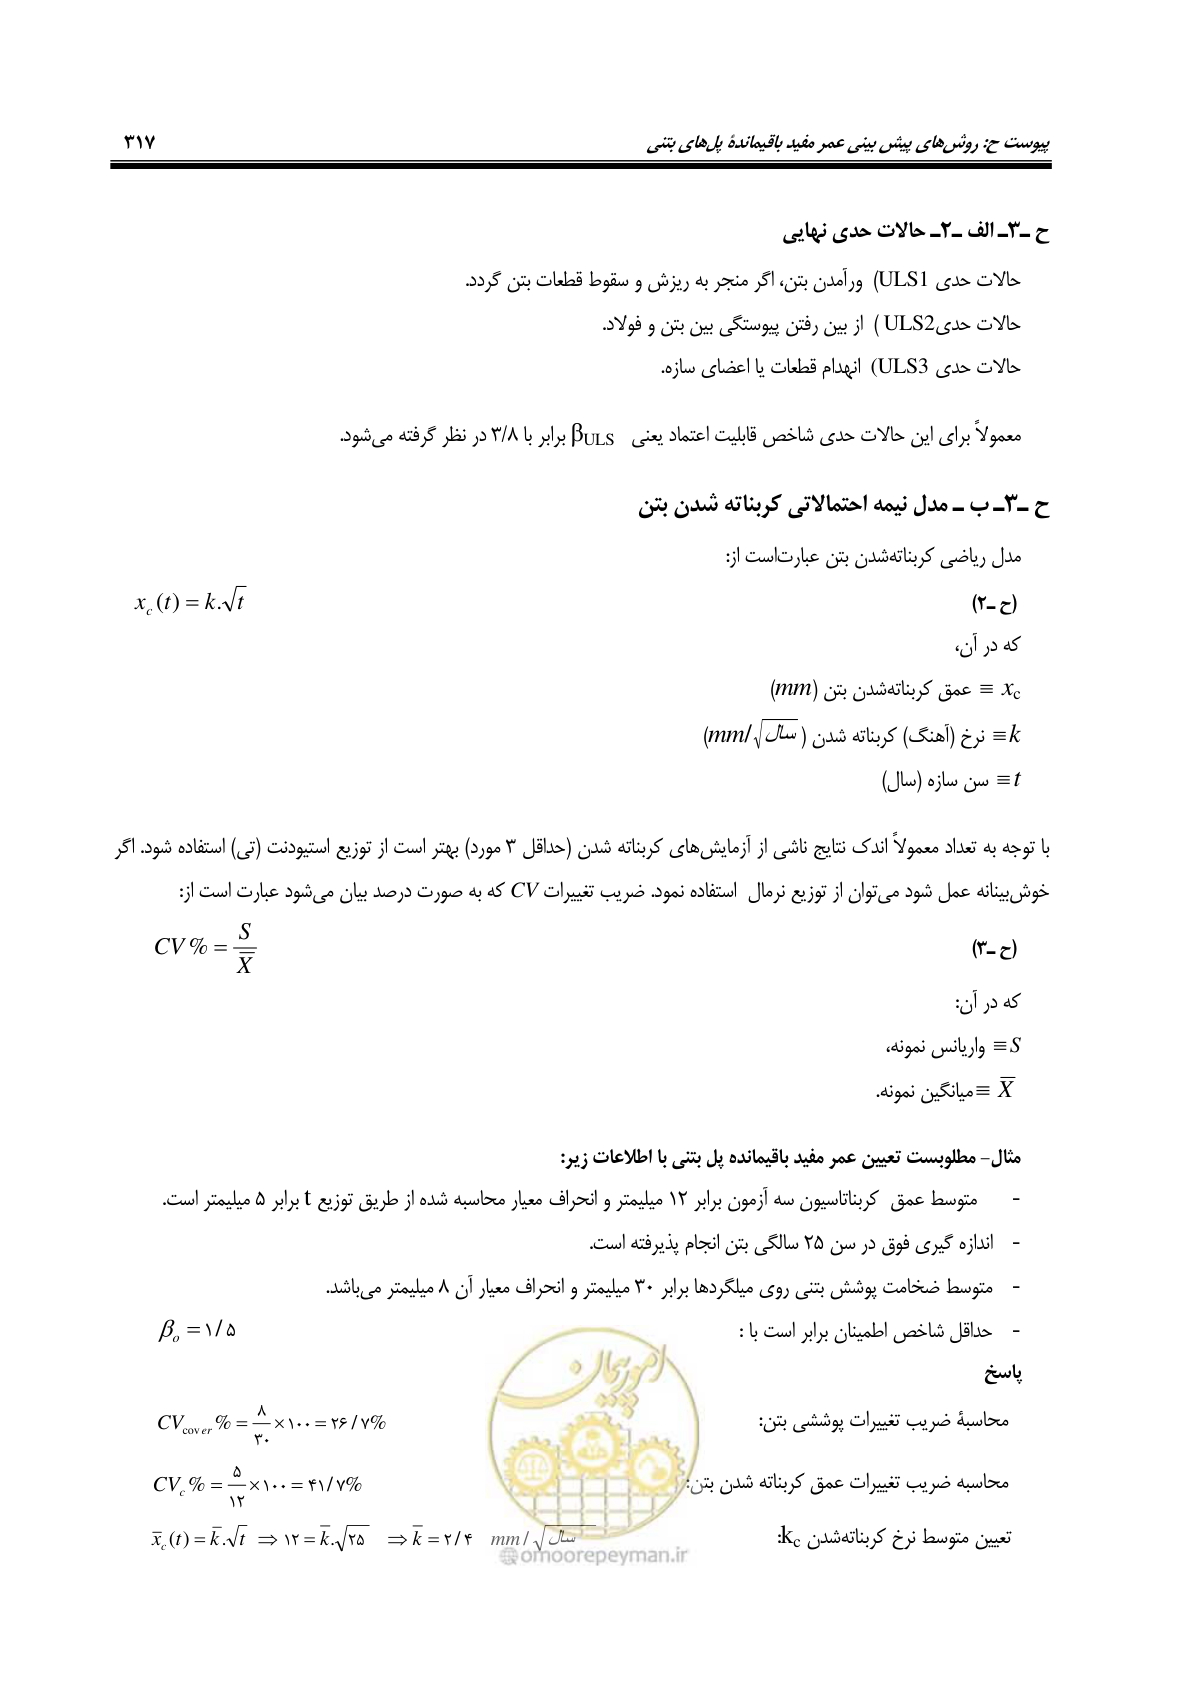 پیوست ح: روش‌های پیش بینی عمر مفید باقیماندهٔ پل‌های بتنی ۳۱۷
ح ـ۳ـ الف ـ۲ـ حالات حدی نهایی
حالات حدی ULS1) ورآمدن بتن، اگر منجر به ریزش و سقوط قطعات بتن گردد.
حالات حدیULS2 ) از بین رفتن پیوستگی بین بتن و فولاد.
حالات حدی ULS3) انهدام قطعات یا اعضای سازه.
معمولاً برای این حالات حدی شاخص قابلیت اعتماد یعنی βULS برابر با ۳/۸ در نظر گرفته می‌شود.
ح ـ۳ـ ب ـ مدل نیمه احتمالاتی کربناته شدن بتن
مدل ریاضی کربناته‌شدن بتن عبارت‌است از:
(ح ـ۲) x_c (t) = k.√t
که در آن،
x_c ≡ عمق کربناته‌شدن بتن (mm)
k ≡ نرخ (آهنگ) کربناته شدن (mm/√سال)
t ≡ سن سازه (سال)
با توجه به تعداد معمولاً اندک نتایج ناشی از آزمایش‌های کربناته شدن (حداقل ۳ مورد) بهتر است از توزیع استیودنت (تی) استفاده شود. اگر
خوش‌بینانه عمل شود می‌توان از توزیع نرمال استفاده نمود. ضریب تغییرات CV که به صورت درصد بیان می‌شود عبارت است از:
(ح ـ۳) CV% = S/X̅
که در آن:
S ≡ واریانس نمونه،
X̅ ≡ میانگین نمونه.
مثال– مطلوبست تعیین عمر مفید باقیمانده پل بتنی با اطلاعات زیر:
- متوسط عمق کربناتاسیون سه آزمون برابر ۱۲ میلیمتر و انحراف معیار محاسبه شده از طریق توزیع t برابر ۵ میلیمتر است.
- اندازه گیری فوق در سن ۲۵ سالگی بتن انجام پذیرفته است.
- متوسط ضخامت پوشش بتنی روی میلگردها برابر ۳۰ میلیمتر و انحراف معیار آن ۸ میلیمتر می‌باشد.
- حداقل شاخص اطمینان برابر است با : β_o = ۱/۵
پاسخ
محاسبهٔ ضریب تغییرات پوششی بتن: CV_cover % = ۸/۳۰ × ۱۰۰ = ۲۶/۷%
محاسبه ضریب تغییرات عمق کربناته شدن بتن: CV_c % = ۵/۱۲ × ۱۰۰ = ۴۱/۷%
تعیین متوسط نرخ کربناته‌شدن k_c: x̅_c (t) = k̅.√t ⇒ ۱۲ = k̅.√۲۵ ⇒ k̅ = ۲/۴ mm/√سال
امور پیمان
@omoorepeyman.ir